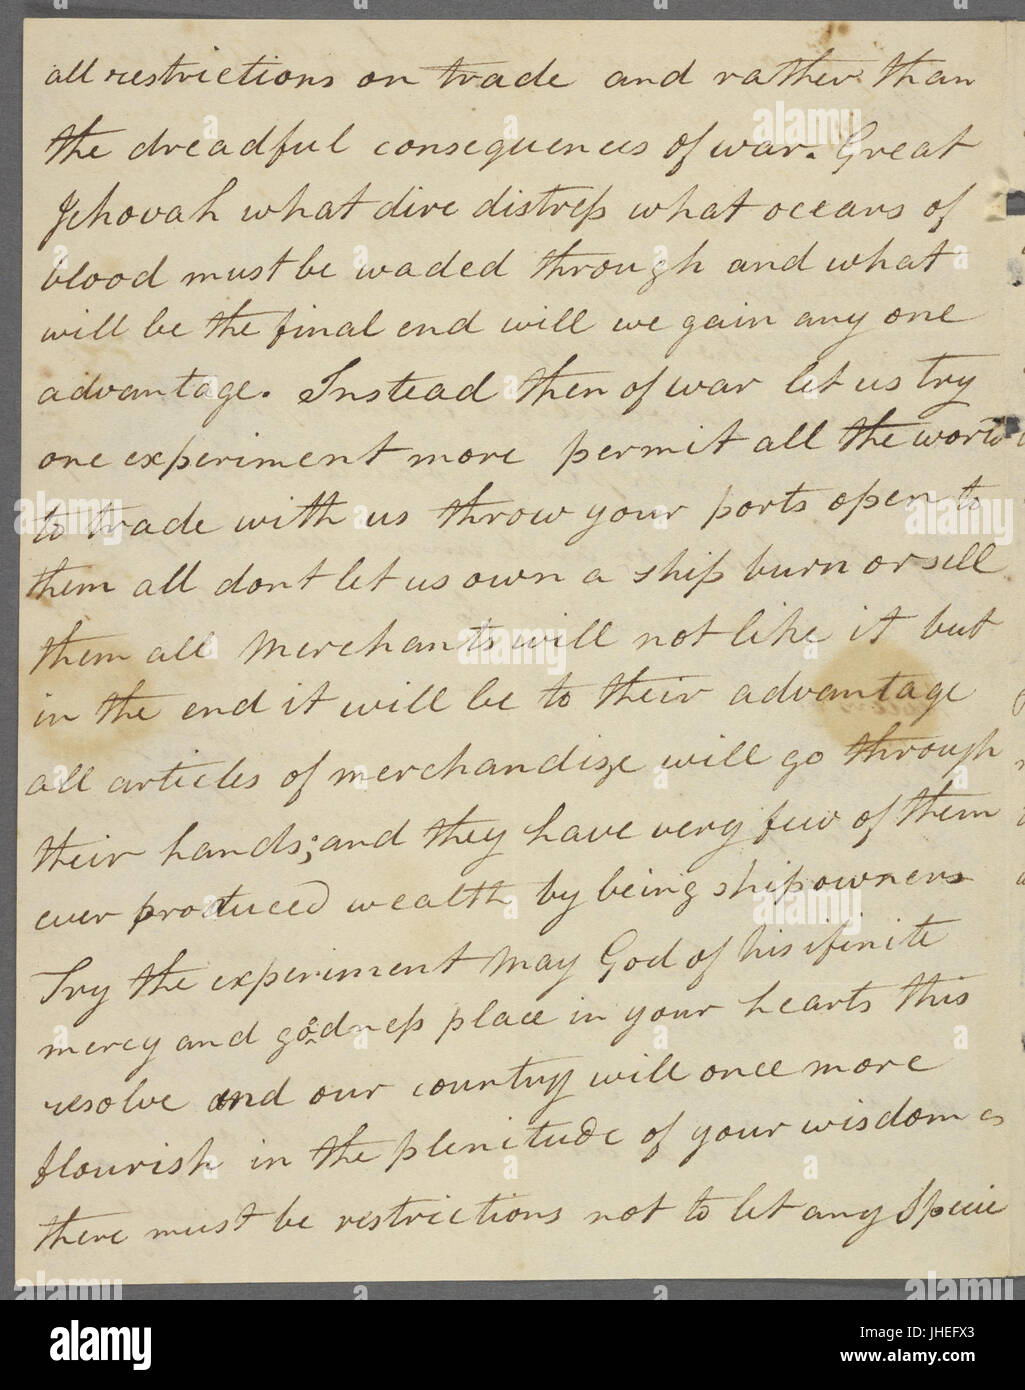 all restrictions on trade and rather than
the dreadful consequences of war. Great
Jehovah what dire distress what oceans of
blood must be waded through and what
will be the final end will we gain any one
advantage. Instead then of war let us try
one experiment more permit all the world
to trade with us throw your ports open to
them all dont let us own a ship burn or sell
them all Merchants will not like it but
in the end it will be to their advantage
all articles of merchandize will go through
their hands; and they have very few of them
ever produced wealth by being shipowners
Try the experiment May God of his ifinite
mercy and goodness place in your hearts this
resolve and our country will once more
flourish in the plenitude of your wisdom
there must be restrictions not to let any Specie
alamy
Image ID: JHEFX3
www.alamy.com